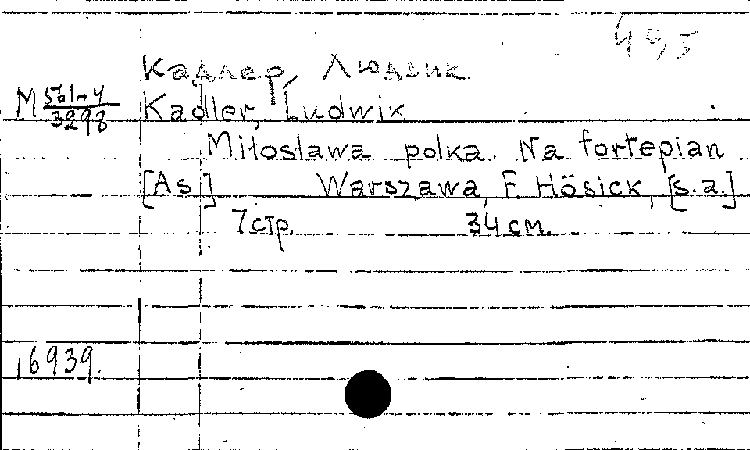 49,5
Кадлер, Людвик
M 561-4/3298 Kadler, Ludwik
Miłosława polka. Na fortepian
[As] Warszawa, F. Hösick, [s.a.]
7 стр. 34 см.
16939.